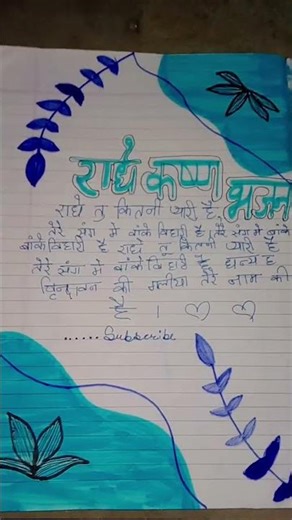 राधे कृष्ण भजन
राधे तु कितनी प्यारी है
तेरे संग मे बांके बिहारी है तेरे संग मे बांके
बांके बिहारी है राधे तु कितनी प्यारी है
तेरे संग मे बांके बिहारी है धन्य है
की गलीया तेरे नाम की
है ।
...... Subscribe